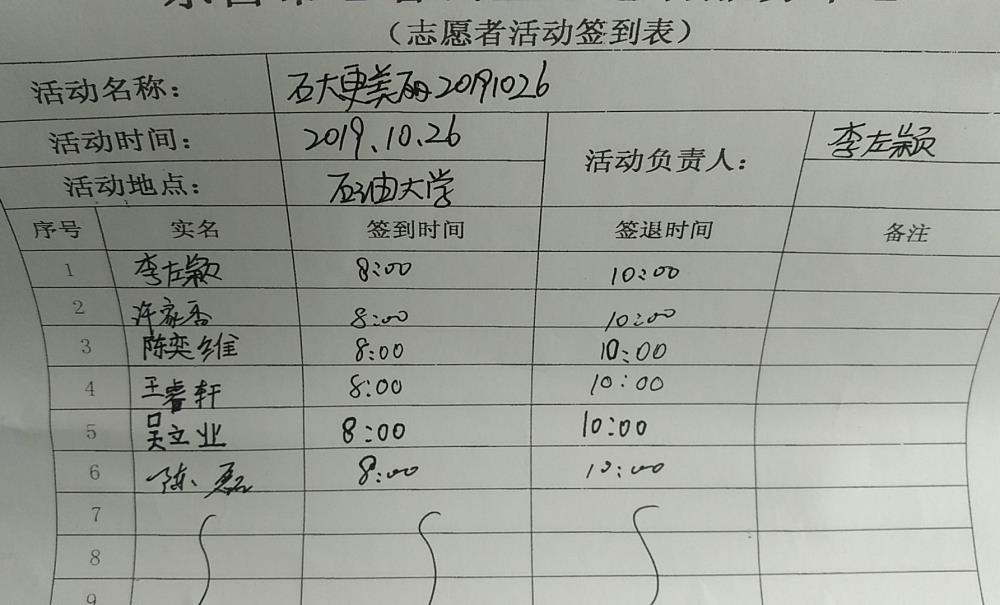 （志愿者活动签到表）
活动名称： 石大更美丽20191026
活动时间： 2019.10.26 活动负责人： 李左颖
活动地点： 石油大学
序号 实名 签到时间 签退时间 备注
1 李左颖 8:00 10:00
2 许家香 8:00 10:00
3 陈奕维 8:00 10:00
4 王睿轩 8:00 10:00
5 吴立业 8:00 10:00
6 陈磊 8:00 10:00
7
8
9